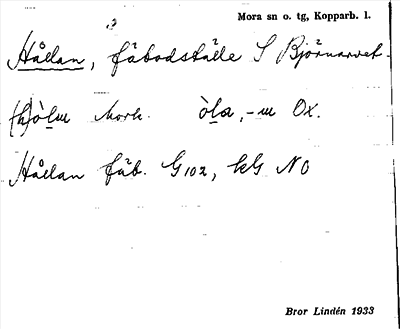 3
Mora sn o. tg, Kopparb. l.
Hållan, fäbodställe S Björnarvet.
(h)òlm Mork. òla, -m Ox.
Hållan fäb. G102, kG NO
Bror Lindén 1933